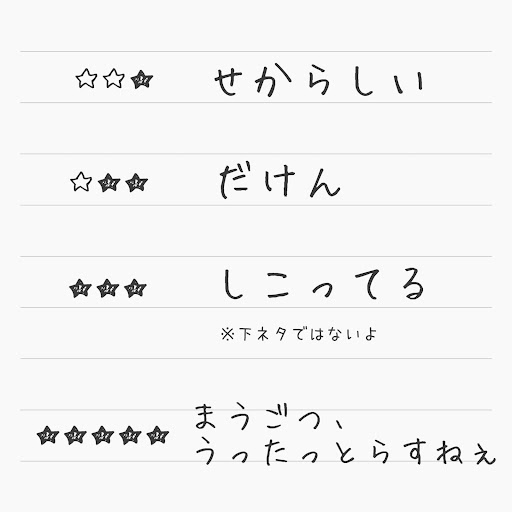 ☆☆★ せからしい
☆★★ だけん
★★★ しこってる
※下ネタではないよ
★★★★★ まうごつ、
うったっとらすねぇ